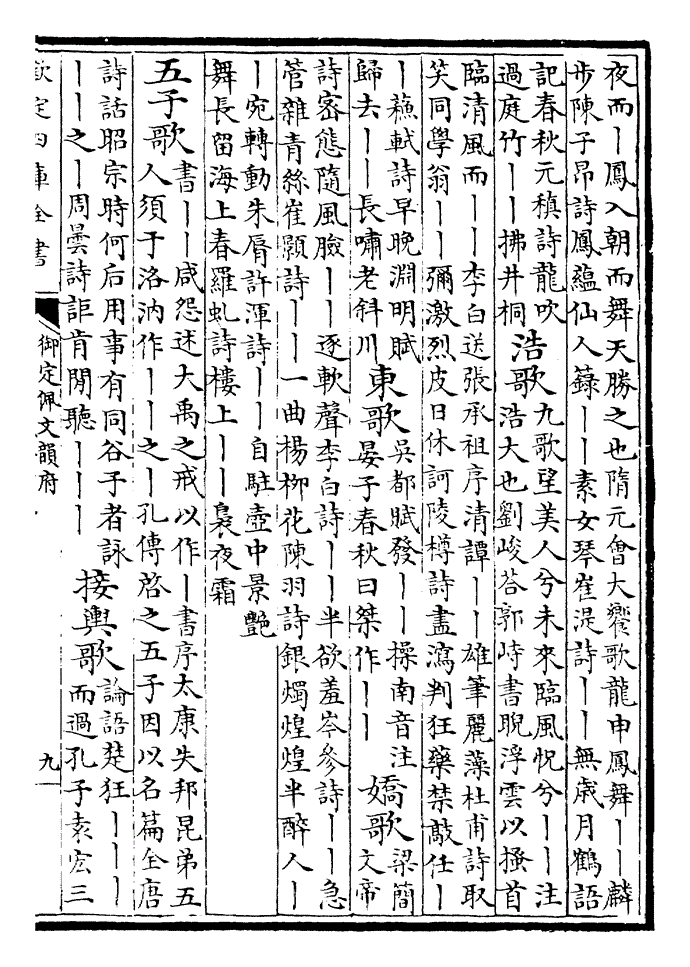 夜而｜鳳入朝而舞天勝之也隋元會大饗歌龍申鳳舞｜｜麟
步陳子昂詩鳳蘊仙人籙｜｜素女琴崔湜詩｜｜無歲月鶴語
記春秋元稹詩龍吹
過庭竹｜｜拂井桐
浩歌
九歌望美人兮未來臨風怳兮｜｜注
浩大也劉峻荅郭峙書睨浮雲以搔首
臨清風而｜｜李白送張承祖序清譚｜｜雄筆麗藻杜甫詩取
笑同學翁｜｜彌激烈皮日休訶陵樽詩盡瀉判狂藥禁敲任｜
｜蘓軾詩早晚淵明賦
歸去｜｜長嘯老斜川
東歌
吳都賦發｜｜操南音注
晏子春秋曰桀作｜｜
嬌歌
梁簡
文帝
詩密態隨風臉｜｜逐軟聲李白詩｜｜半欲羞岑參詩｜｜急
管雜青絲崔顥詩｜｜一曲楊柳花陳羽詩銀燭煌煌半醉人｜
｜宛轉動朱脣許渾詩｜｜自駐壺中景艷
舞長留海上春羅虬詩樓上｜｜裊夜霜
五子歌
書｜｜咸怨述大禹之戒以作｜書序太康失邦昆弟五
人須于洛汭作｜｜之｜孔傳啓之五子因以名篇全唐
詩話昭宗時何后用事有同谷子者詠
｜｜之｜周曇詩詎肯閒聽｜｜｜
接輿歌
論語楚狂｜｜｜
而過孔子袁宏三
欽定四庫全書
御定佩文韻府
九